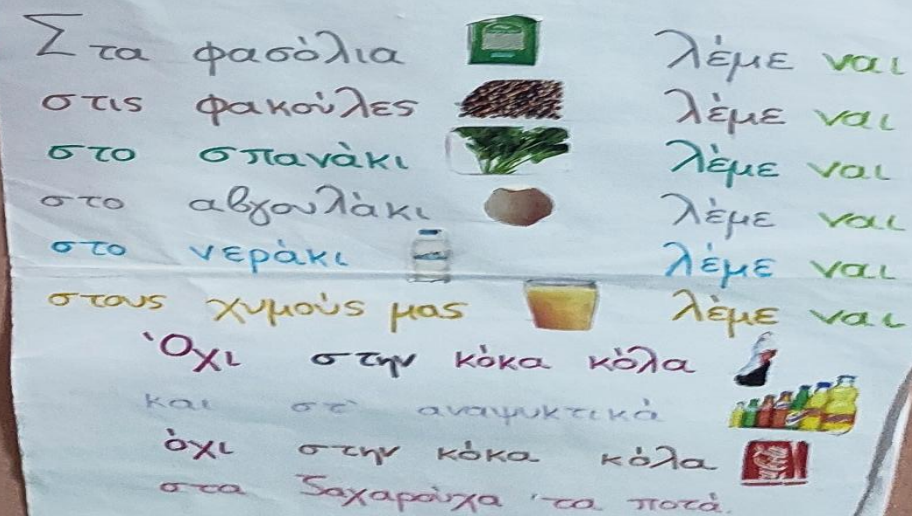 Στα φασόλια λέμε ναι
στις φακούλες λέμε ναι
στο σπανάκι λέμε ναι
στο αβγουλάκι λέμε ναι
στο νεράκι λέμε ναι
στους χυμούς μας λέμε ναι
Όχι στην κόκα κόλα
και στ' αναψυκτικά
όχι στην κόκα κόλα
στα ζαχαρούχα 'τα ποτά.